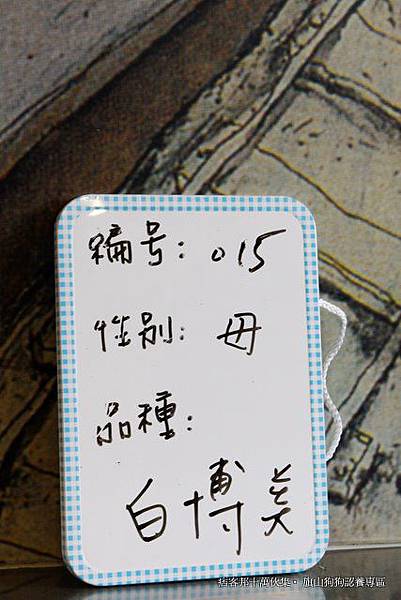 編号：015
性别：母
品種：
白博美
痞客邦十萬伙集· 旗山狗狗認養專區